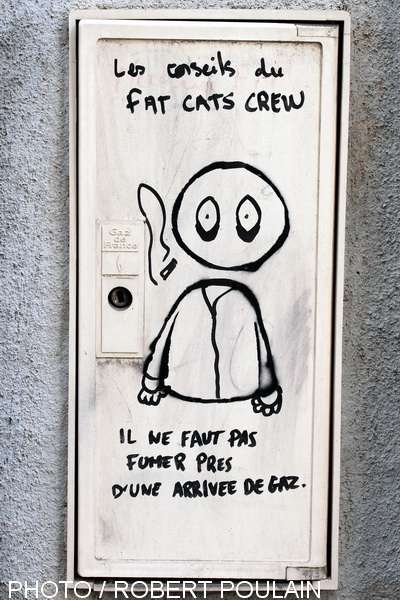 Les conseils du
FAT CATS CREW
Gaz
de
France
IL NE FAUT PAS
FUMER PRES
D'UNE ARRIVEE DE GAZ.
PHOTO / ROBERT POULAIN